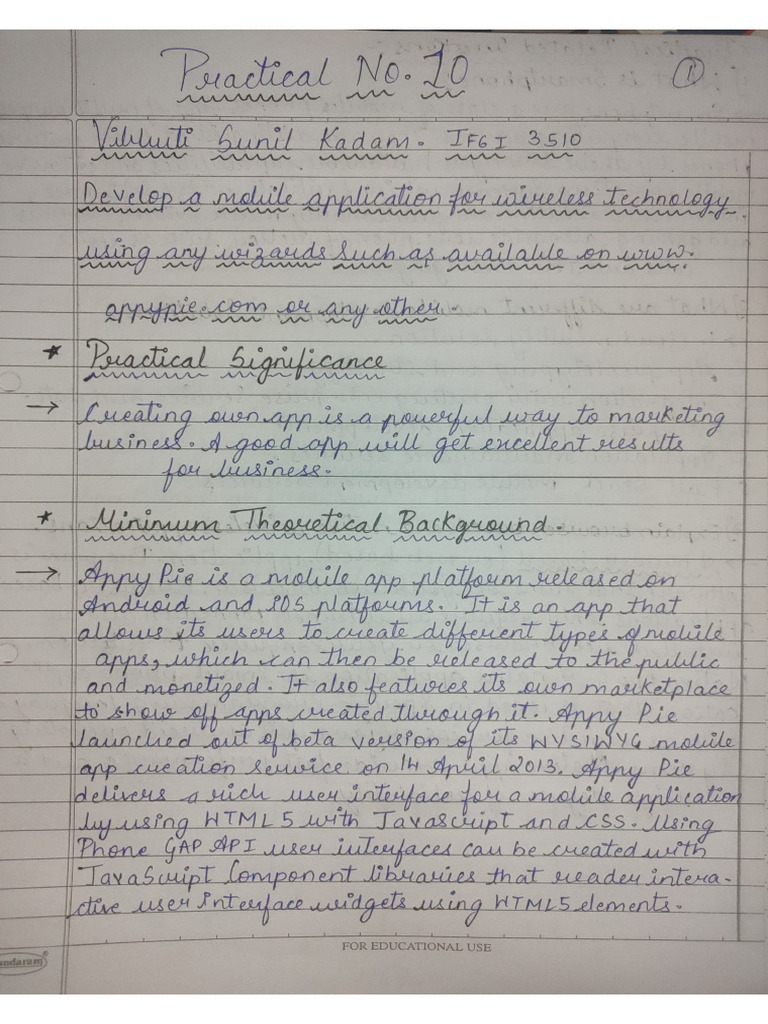 Practical No. 10
1
Vibhuti Sunil Kadam. IF6I 3510
Develop a mobile application for wireless technology
using any wizards such as available on www.
appypie.com or any other.
* Practical Significance
→ Creating own app is a powerful way to marketing
business. A good app will get excellent results
for business.
* Minimum Theoretical Background.
→ Appy Pie is a mobile app platform released on
Android and IOS platforms. It is an app that
allows its users to create different types of mobile
apps, which can then be released to the public
and monetized. It also features its own marketplace
to show off apps created through it. Appy Pie
launched out of beta version of its WYSIWYG mobile
app creation service on 14 April 2013. Appy Pie
delivers a rich user interface for a mobile application
by using HTML5 with JavaScript and CSS. Using
Phone GAP API user interfaces can be created with
JavaScript Component libraries that reader intera-
ctive user interface widgets using HTML5 elements.
FOR EDUCATIONAL USE
undaram